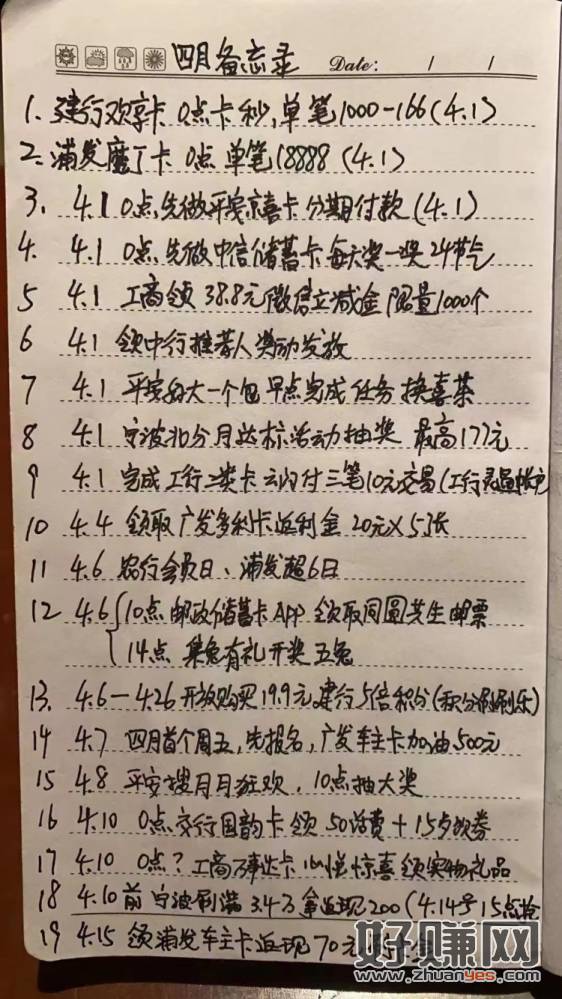 四月备忘录 Date: / /
1. 建行欢享卡 0点卡秒,单笔1000-166(4.1)
2. 浦发魔丁卡 0点 单笔18888 (4.1)
3. 4.1 0点,先做平安京喜卡 分期付款(4.1)
4. 4.1 0点 先做中信储蓄卡 每天奖一奖 24节气
5 4.1 工商领 38.8元微信立减金 限量1000个
6 4.1 领中行推荐人奖励发放
7 4.1 平安 大一个包 早点完成任务 换喜茶
8 4.1 宁波 30分 月达标活动抽奖 最高177元
9 4.1 完成工行二类卡云闪付三笔10元交易(工行灵通
10 4.4 领取广发多利卡返利金 20元×5张
11 4.6 农行会员日、浦发超6日
12 4.6 10点 邮政储蓄卡APP 领取同圆共生邮票
14点 集兔有礼开奖 五兔
13. 4.6—4.26 开放购买19.9元建行5倍积分(积分刷刷乐)
14 4.7 四月首个周五,先报名,广发车主卡加油500元
15 4.8 平安搜月月狂欢,10点抽大奖
16 4.10 0点交行国韵卡领 50话费+15点 券
17 4.10 0点?工商万事达卡 心悦惊喜 领实物礼品
18 4.10前 宁波刷满 3.4万 拿返现200(4.14号15点抢
19 4.15 领浦发车主卡返现70元
好赚网
www.zhuanyes.com